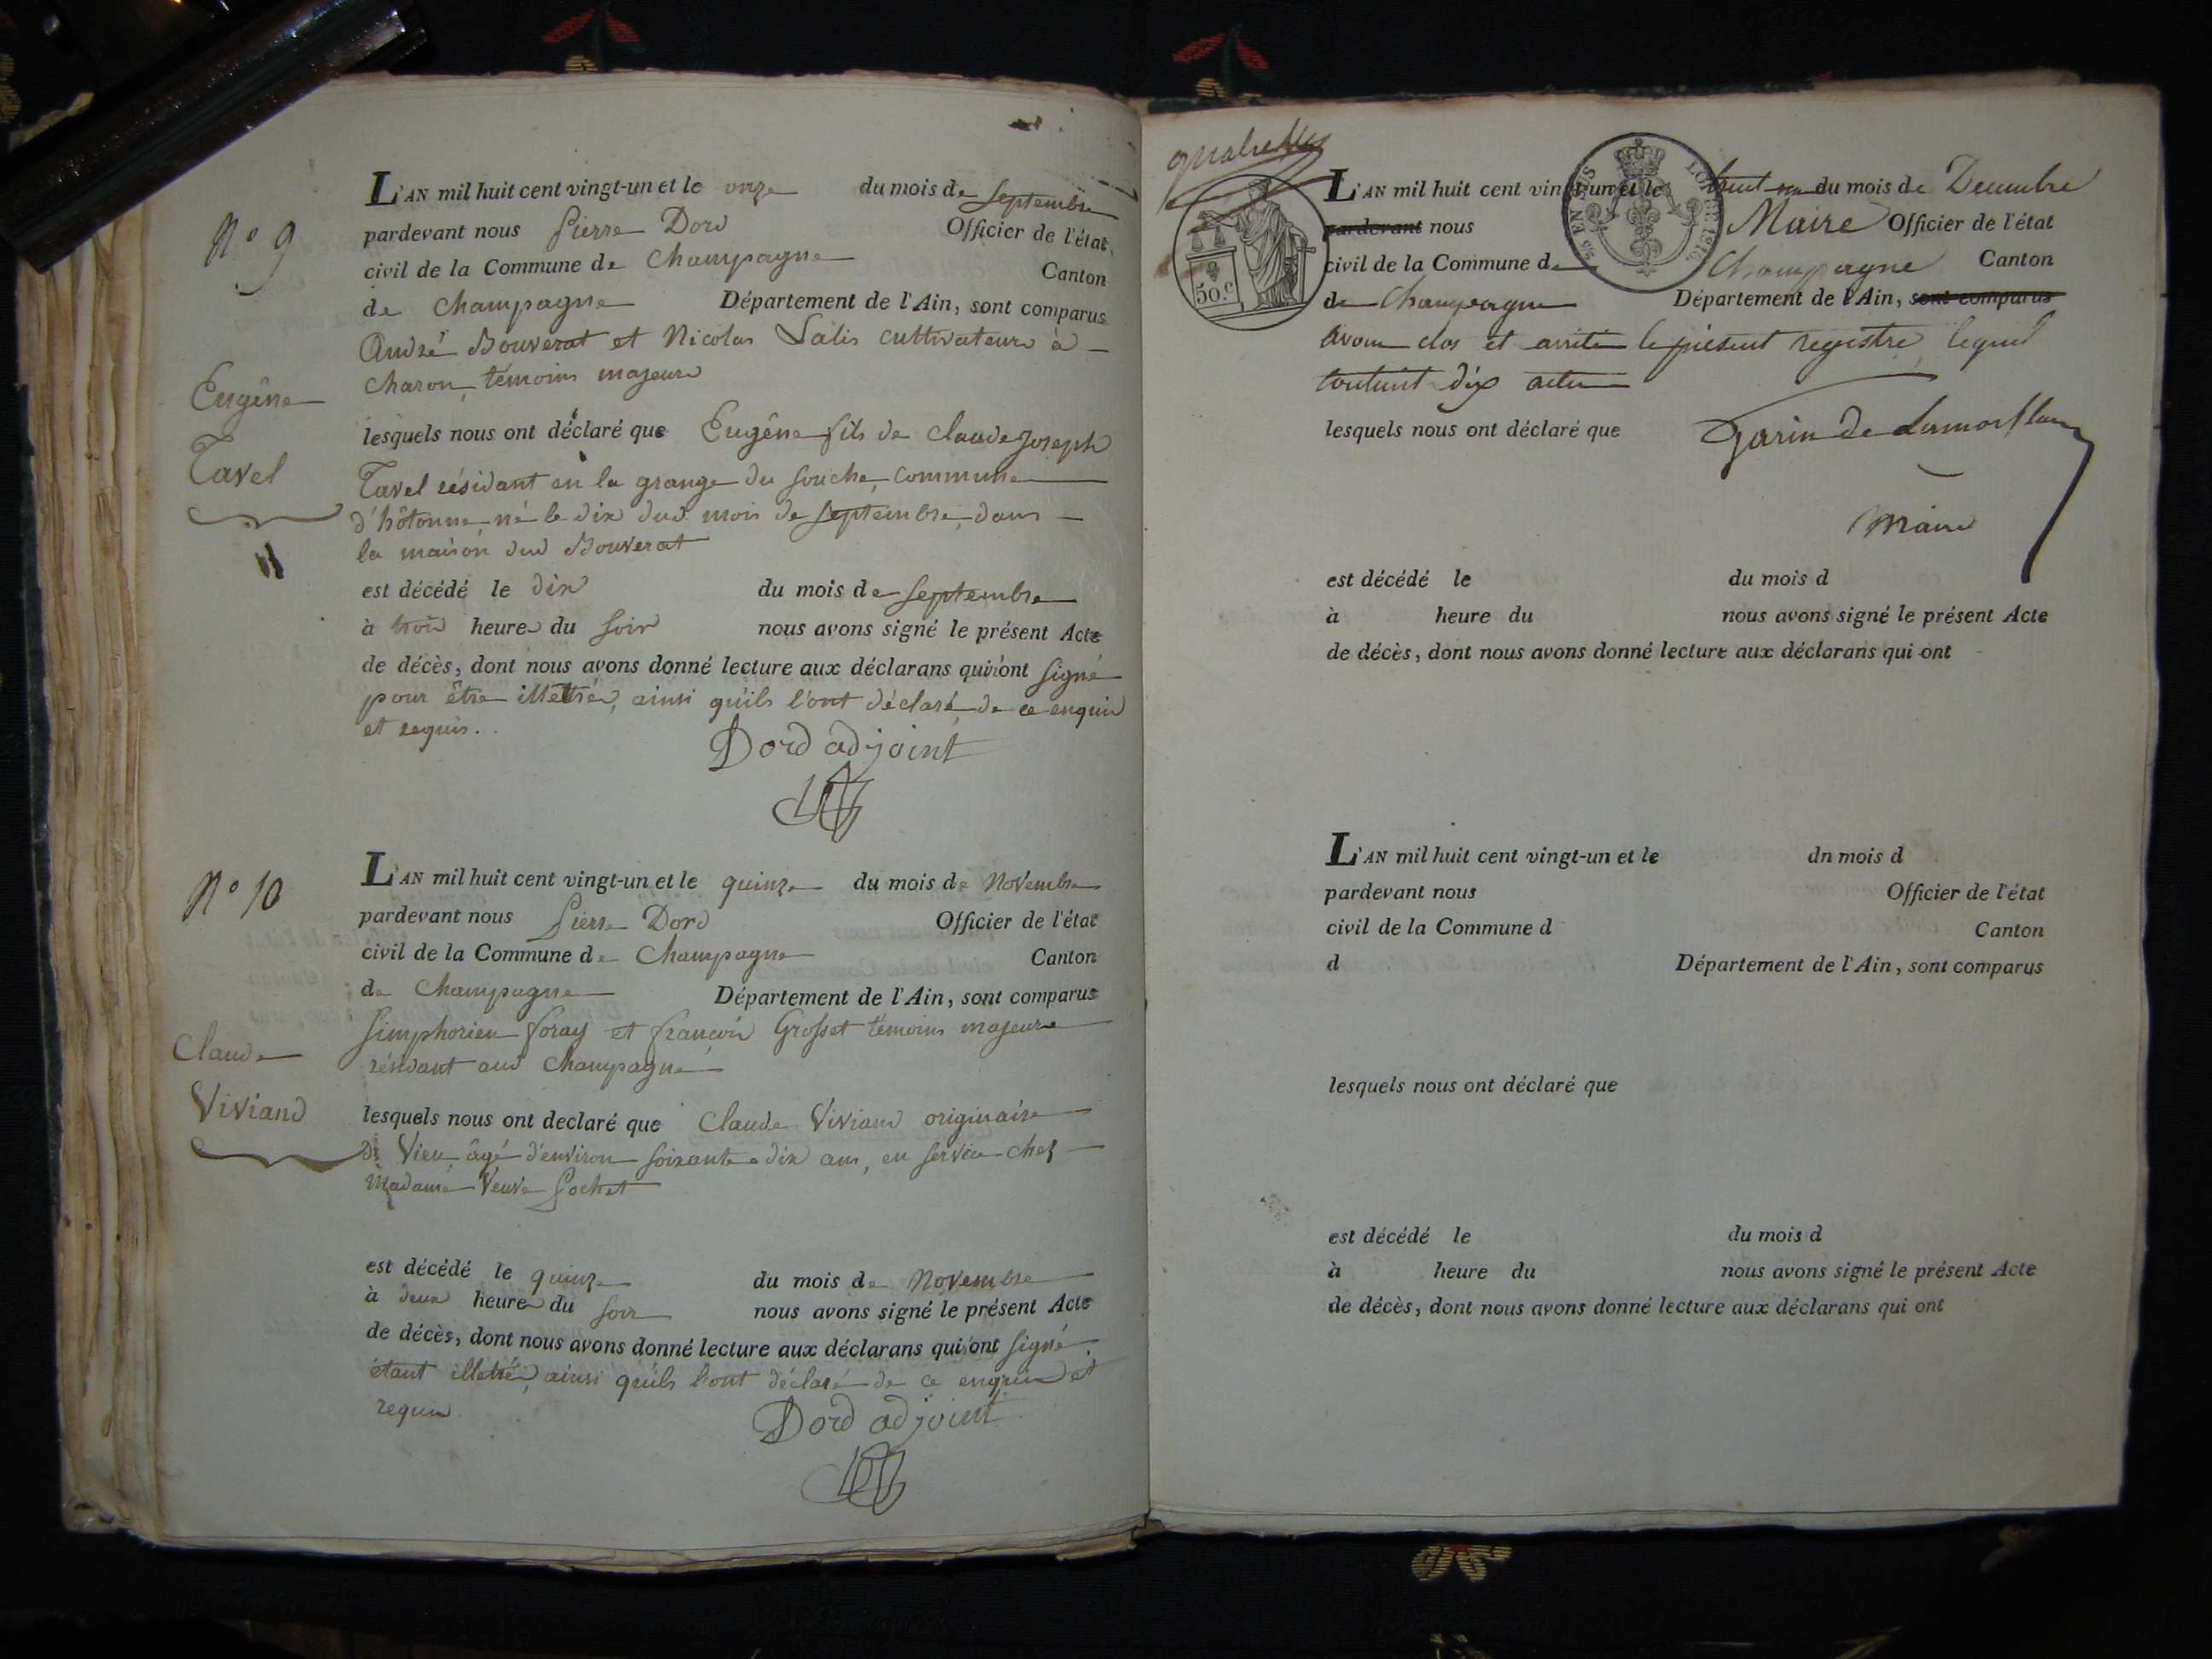 N° 9
L'AN mil huit cent vingt-un et le onze du mois de Septembre
pardevant nous Pierre Dord Officier de l'état
civil de la Commune de Champagne Canton
de Champagne Département de l'Ain, sont comparus
André Bouverat et Nicolas Lalis cultivateurs à
Charon, témoins majeurs
Eugêne
Tavel
lesquels nous ont déclaré que Eugêne fils de Claude Joseph
Tavel résidant en la grange du Souche, commune
d'hôtonne né le dix dud. mois de septembre, dans
la maison dud Bouverat
est décédé le dix du mois de Septembre
à trois heures du soir nous avons signé le présent Acte
de décès, dont nous avons donné lecture aux déclarans qui n'ont signé
pour être illettrés, ainsi qu'ils l'ont déclaré de ce enquis
et requis.
Dord adjoint
N° 10
L'AN mil huit cent vingt-un et le quinze du mois de Novembre
pardevant nous Pierre Dord Officier de l'état
civil de la Commune de Champagne Canton
de Champagne Département de l'Ain, sont comparus
Simphorien foray et françois Grosset témoins majeurs
résidant aud Champagne
Claude
Viviand
lesquels nous ont declaré que Claude Viviand originaire
de Vieu âgé d'environ soixante dix ans, en service chez
Madame Veuve Pochet
est décédé le quinze du mois de Novembre
à deux heures du soir nous avons signé le présent Acte
de décès, dont nous avons donné lecture aux déclarans qui n'ont signé
étant illettrés, ainsi qu'ils l'ont déclaré de ce enquis et
requis.
Dord adjoint
50.c
L'AN mil huit cent vingt-un et le trent un du mois de Decembre
pardevant nous Maire Officier de l'état
civil de la Commune de Champagne Canton
de Champagne Département de l'Ain, sont comparus
avons clos et arrêté le présent registre lequel
contient dix actes
lesquels nous ont déclaré que
Maire
est décédé le du mois d
à heure du nous avons signé le présent Acte
de décès, dont nous avons donné lecture aux déclarans qui ont
L'AN mil huit cent vingt-un et le dn mois d
pardevant nous Officier de l'état
civil de la Commune d Canton
d Département de l'Ain, sont comparus
lesquels nous ont déclaré que
est décédé le du mois d
à heure du nous avons signé le présent Acte
de décès, dont nous avons donné lecture aux déclarans qui ont